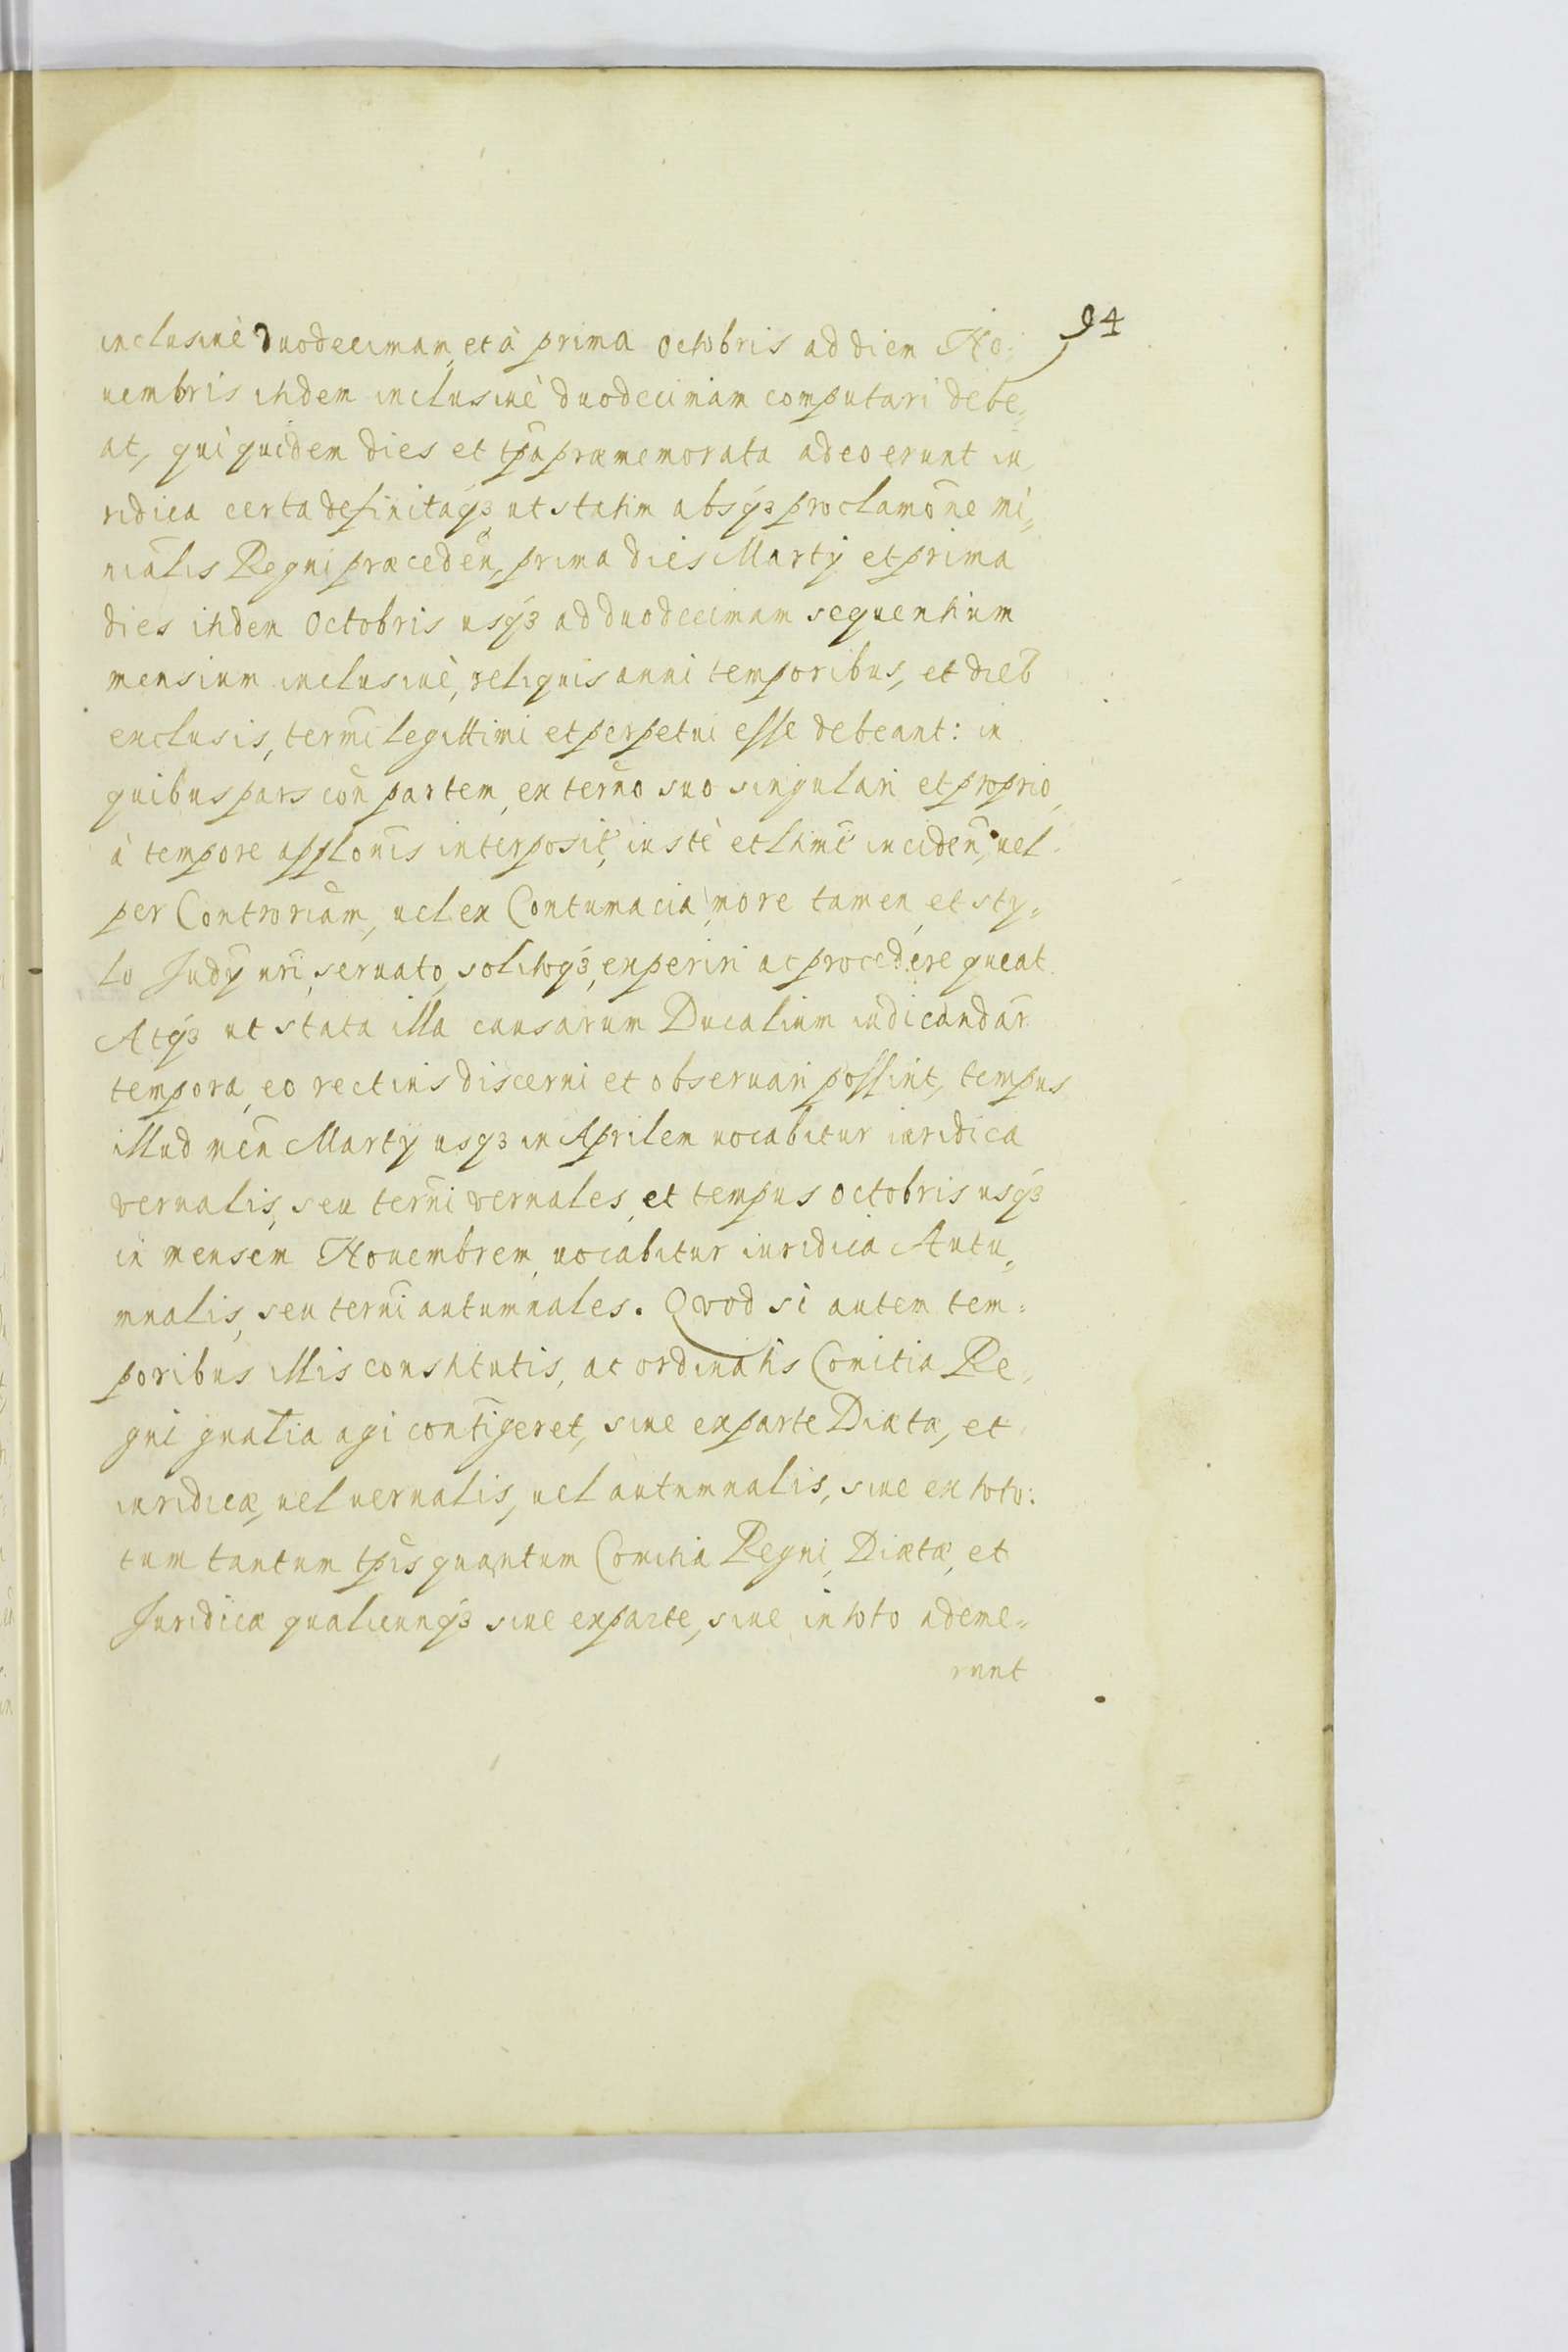 94
inclusiuè duodecimam, et à prima Octobris ad diem No„
uembris itidem inclusiuè duodecimam computari debe„
at, qui quidem dies et tp̃a præmemorata adeo erunt iu„
ridica certa definitaq₃, ut statim absq₃ proclamõne mi„
niãlis Regni præceden̄, prima dies Martÿ et prima
dies itidem Octobris usq₃ ad duodecimam sequentium
mensium inclusiuè, reliquis anni temporibus, et dieb̃
exclusis, term̃i legittimi et perpetui esse debeant: in
quibus pars con̄ partem, ex term̃o suo singulari et proprio,
à tempore appl̃onis interposit̃, iustè et l̃time inciden̄, uel
per Controriam̃, uel ex Contumacia, more tamen, et sty„
lo Judÿ nr̃i, seruato, solitoq₃, experiri ac procedere queat.
Atq₃ ut stata illa causarum Ducalium iudicandar̃
tempora, eo rectius discerni et obseruari possint, tempus
illud men̄ Martÿ usq₃ in Aprilem uocabitur iuridica
vernalis, seu term̃i vernales, et tempus Octobris usq₃
in mensem Nouembrem, uocabitur iuridica Autu„
mnalis, seu term̃i autumnales. Qvod si autem tem„
poribus illis constitutis, ac ordinatis Comitia Re„
gni gñalia agi contigeret, siue ex parte Diæta, et
iuridicæ, uel uernalis, uel autumnalis, siue ex toto:
tum tantum tp̃is quantum Comitia Regni, Diætæ, et
Juridicæ qualicunq₃ siue ex parte, siue in toto ademe„
runt